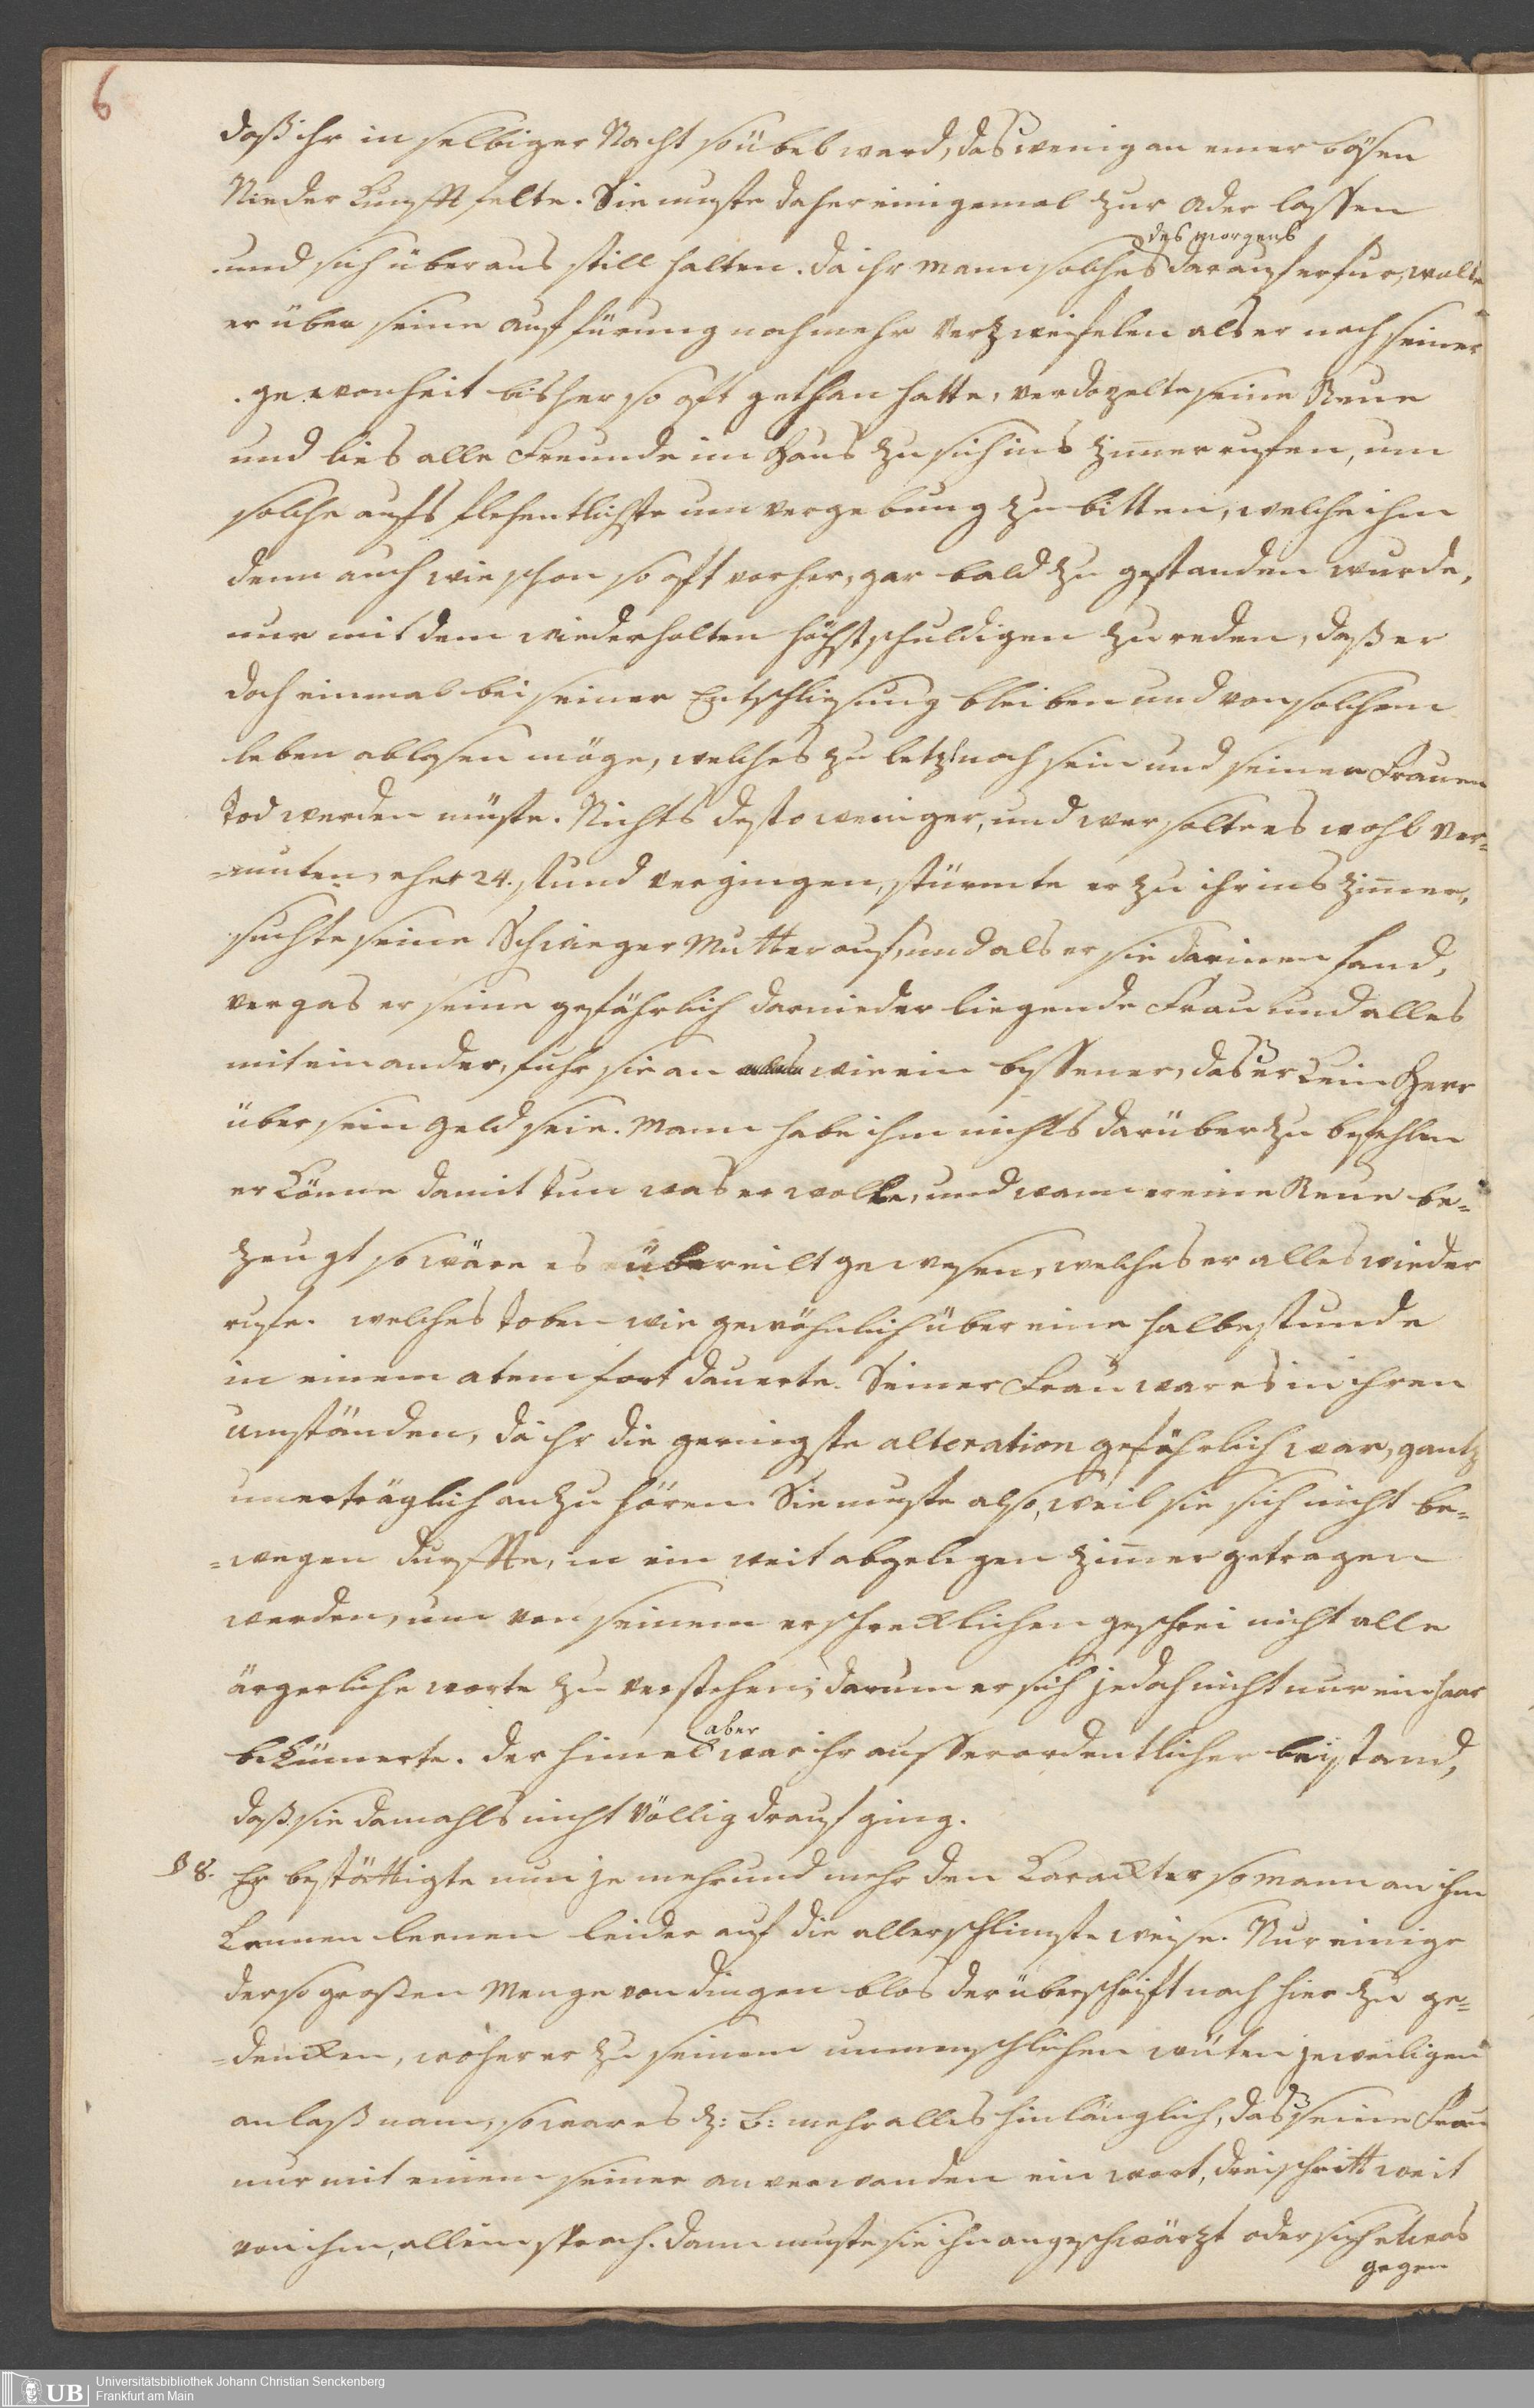 6
daß ihr in selbiger Nacht so übel ward, das wenig an einer bösen
Nieder Kunfft felte. Sie muste daher einigemal zur Ader lassen
des morgens
und sich überaus still halten. da ihr mann solches darauf erfur, wolte
er über seine aufführung noch mehr verzweifelen als er nach seiner
gewonheit bisher so oft gethan hatte, verdopelte seine Reue
und lies alle Freunde im Haus zu sich ins Zimer rufen, um
solche aufs flehentlichste um vergebung zu bitten, welche ihm
denn auch wie schon so oft vorher, gar bald zu gestanden wurde,
nur mit dem wiederholten höchstschuldigen zureden, daß er
doch einmal bei seiner Entschliesung bleiben und von solchem
leben ablasen möge, welches zu letzt noch sein und seiner Frauen
Tod werden müste. Nichts desto weniger, und wer solte es wohl ver=
=muten, eher 24. stund vergingen, stürmte er zu ihr ins Zimer,
suchte seine Schwieger Mutter auf, und als er sie darinen fand,
vergas er seine gefährlich darnieder liegende Frau und alles
miteinander, fuhr sie an wie ein bessener, das er kein Herr
über sein Geld seie. Mann habe ihm nichts darüber zu befehlen
er könne damit tun was er wolle, und wann er eine Reue be=
zeugt so wäre es übereilt gewesen, welches er alles wieder
rufe. welches toben wie gewöhnlich über eine halbe stunde
in einem atem fort dauerte. Seiner Frau war es in ihren
umständen, da ihr die geringste alteration gefährlich war, gantz
unerträglich anzu hören. Sie muste also, weil sie sich nicht be=
=wegen durffte, in ein weit abgelegen Zimer getragen
werden, um von seinem erschrecklichen geschrei nicht alle
ärgerliche worte zu verstehen; darum er sich jedoch nicht nur ein haar
aber
bekümerte. der himel war ihr ausserordentlicher beistand,
daß sie damahls nicht völlig drauf ging.
§ 8. Er bestättigte nun je mehr und mehr den Caracter so mann an ihm
kennen lernen leider auf die allerschlimste weise. Nur einige
der so großen Menge von dingen blos der überschrift nach hier zu ge=
=dencken, woher er zu seinem unmenschlichen wüten jeweiligen
anlaß nam, so war es z: B: mehr alles hinlänglich, das seine Frau
nur mit einem seiner anverwanden ein wort, drei schritt weit
von ihm, allein sprach. dann muste sie ihn angeschwärzt oder sich etwas
gegen
UB
Universitätsbibliothek Johann Christian Senckenberg
Frankfurt am Main